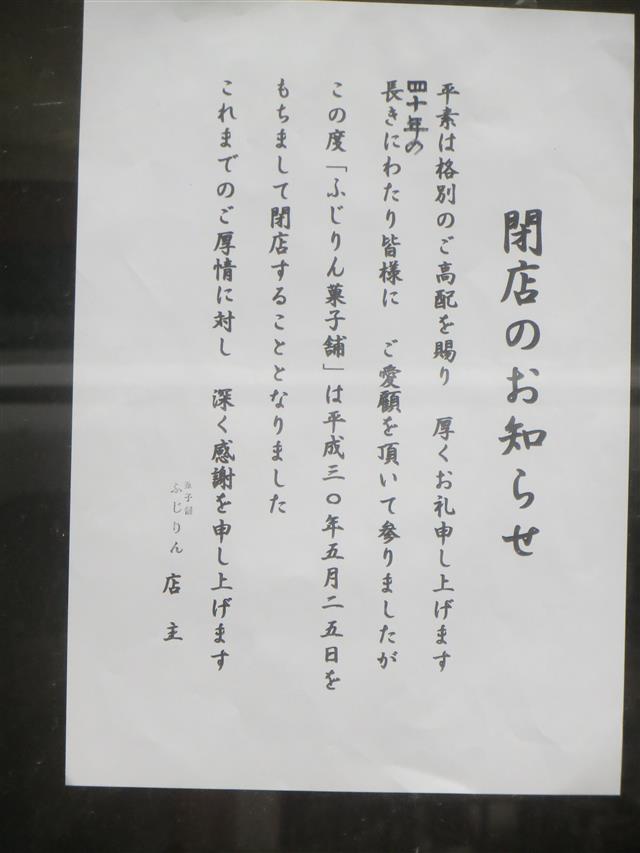 閉店のお知らせ
平素は格別のご高配を賜り 厚くお礼申し上げます
四十年の
長きにわたり皆様に ご愛顧を頂いて参りましたが
この度「ふじりん菓子舗」は平成三〇年五月二五日を
もちまして閉店することとなりました
これまでのご厚情に対し 深く感謝を申し上げます
菓子舗
ふじりん 店主